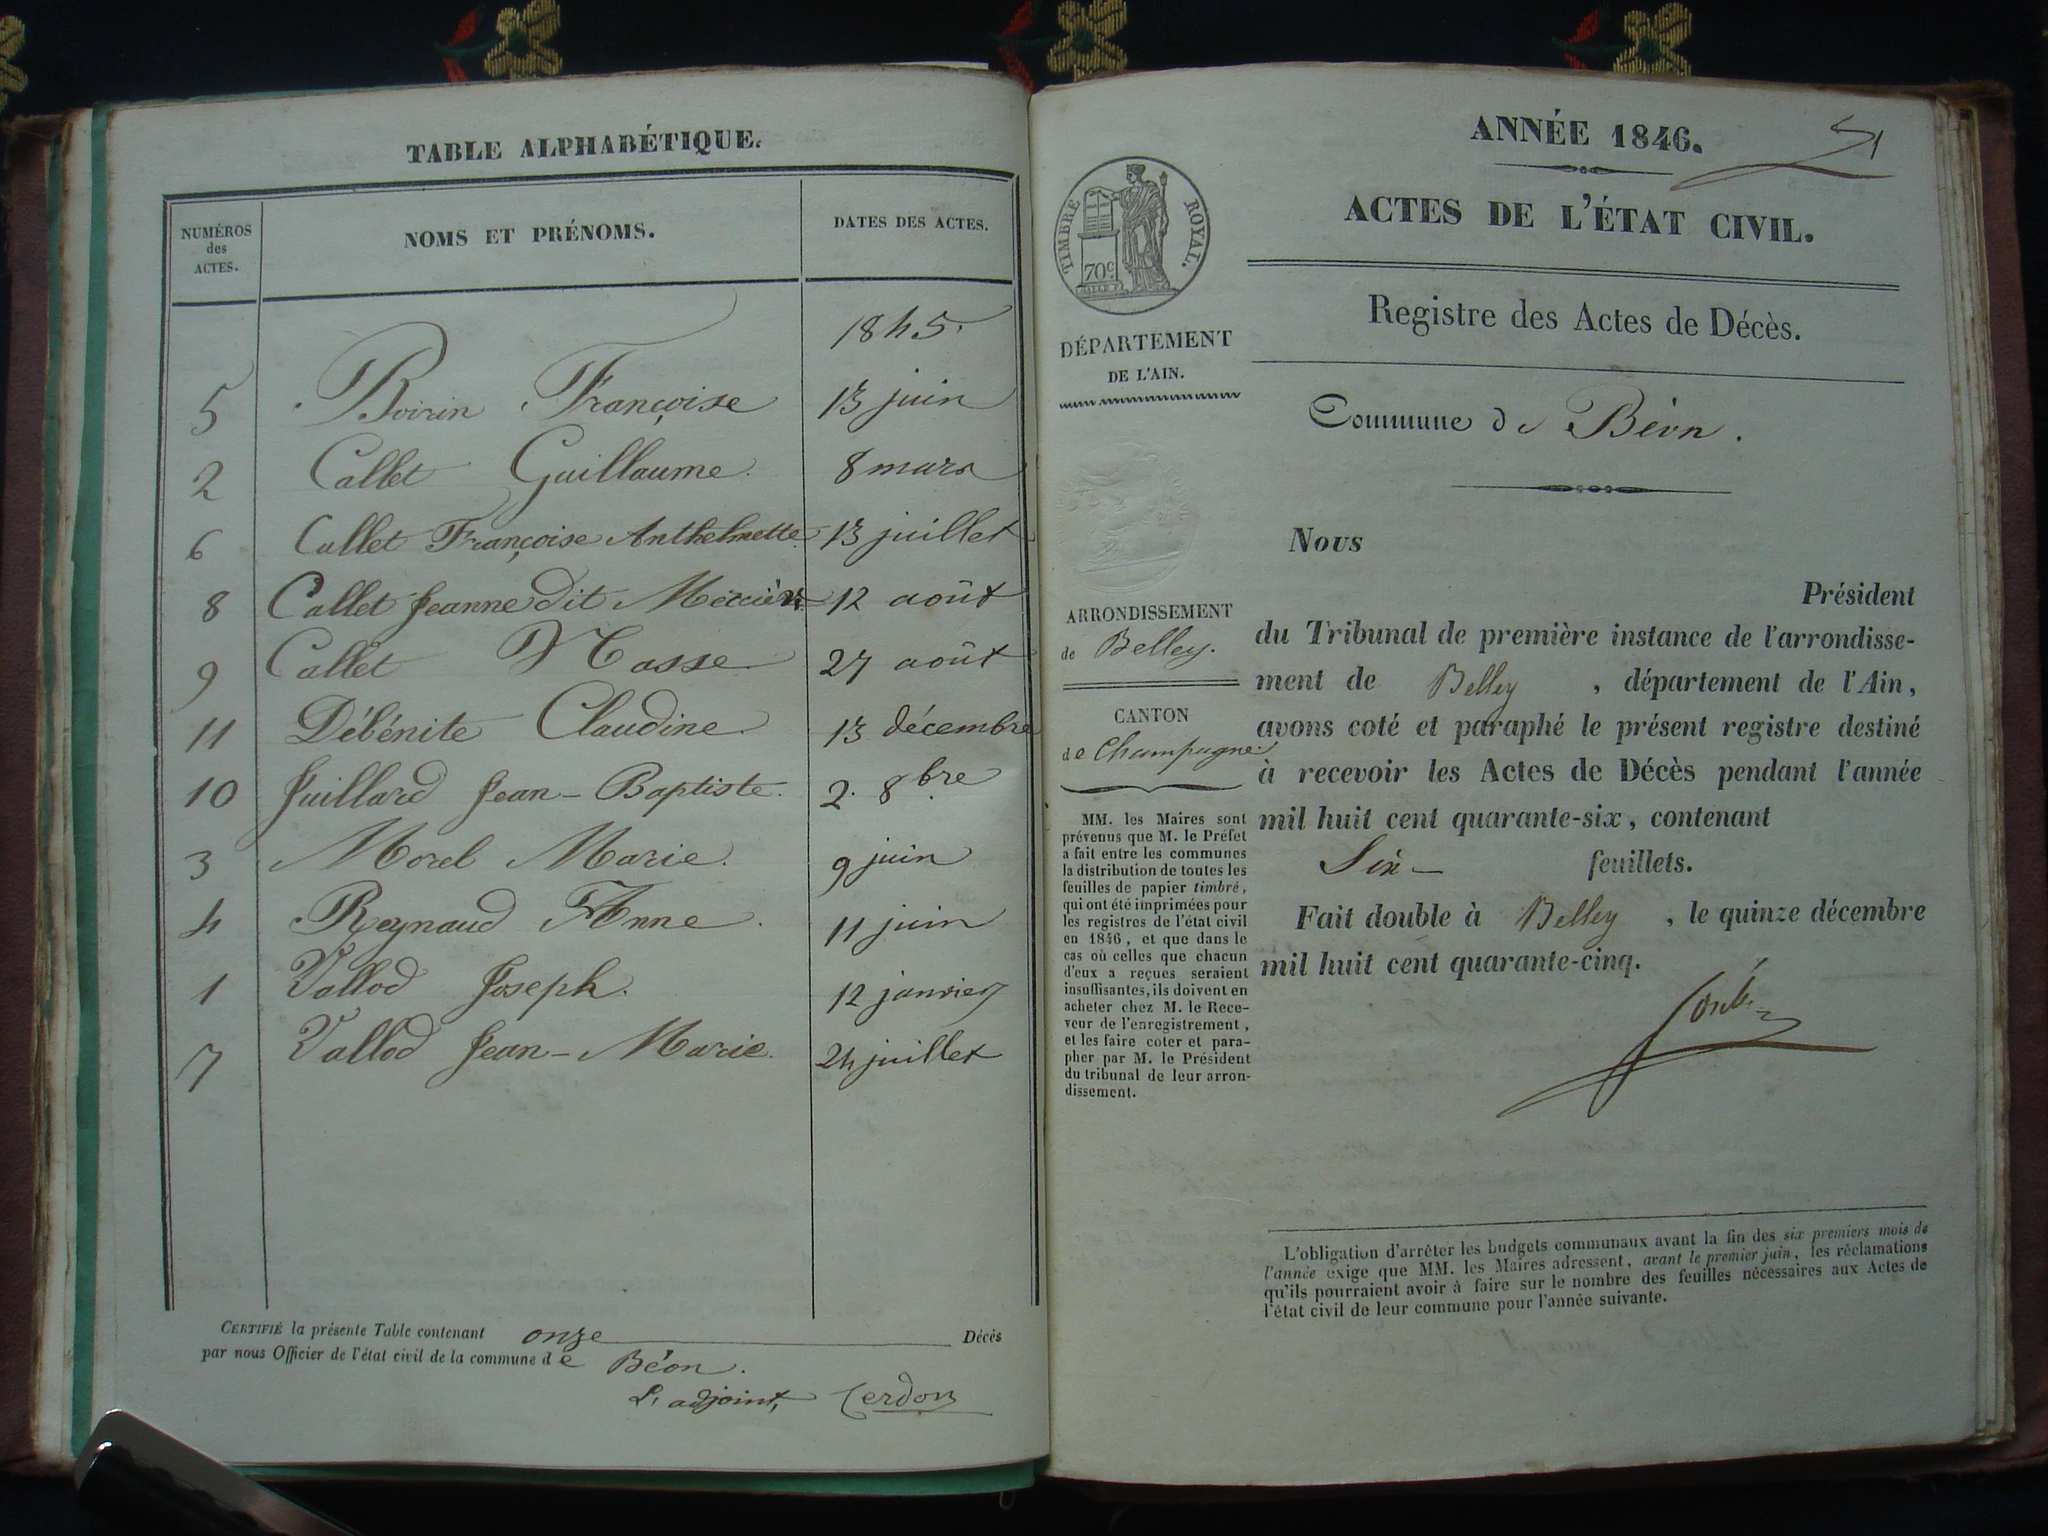 TABLE ALPHABÉTIQUE.
NUMÉROS des ACTES.
NOMS ET PRÉNOMS.
DATES DES ACTES.
1845.
5 Boirin Françoise 13 juin
2 Callet Guillaume. 8 mars
6 Callet Françoise Anthelmette 13 juillet
8 Callet Jeanne dit Mercier 12 août
9 Callet Nasse 27 août
11 Débénite Claudine 13 décembre
10 Juillard Jean-Baptiste. 2. 8bre
3 Morel Marie. 9 juin
4 Reynaud Anne. 11 juin
1 Vallod Joseph. 12 janvier
7 Vallod Jean-Marie. 24 juillet
CERTIFIÉ la présente Table contenant onze Décès
par nous Officier de l'état civil de la commune de Béon.
L'adjoint, Cerdon
51
ANNÉE 1846.
ACTES DE L'ÉTAT CIVIL.
Registre des Actes de Décès.
Commune de Béon.
TIMBRE ROYAL.
70c
DÉPARTEMENT
DE L'AIN.
ARRONDISSEMENT
de Belley.
CANTON
de Champagne.
MM. les Maires sont
prévenus que M. le Préfet
a fait entre les communes
la distribution de toutes les
feuilles de papier timbré,
qui ont été imprimées pour
les registres de l'état civil
en 1846, et que dans le
cas où celles que chacun
d'eux a reçues seraient
insuffisantes, ils doivent en
acheter chez M. le Rece-
veur de l'enregistrement,
et les faire coter et para-
pher par M. le Président
du tribunal de leur arron-
dissement.
Nous
Président
du Tribunal de première instance de l'arrondisse-
ment de Belley, département de l'Ain,
avons coté et paraphé le présent registre destiné
à recevoir les Actes de Décès pendant l'année
mil huit cent quarante-six, contenant
Six feuillets.
Fait double à Belley, le quinze décembre
mil huit cent quarante-cinq.
L'obligation d'arrêter les budgets communaux avant la fin des six premiers mois de
l'année exige que MM. les Maires adressent, avant le premier juin, les réclamations
qu'ils pourraient avoir à faire sur le nombre des feuilles nécessaires aux Actes de
l'état civil de leur commune pour l'année suivante.